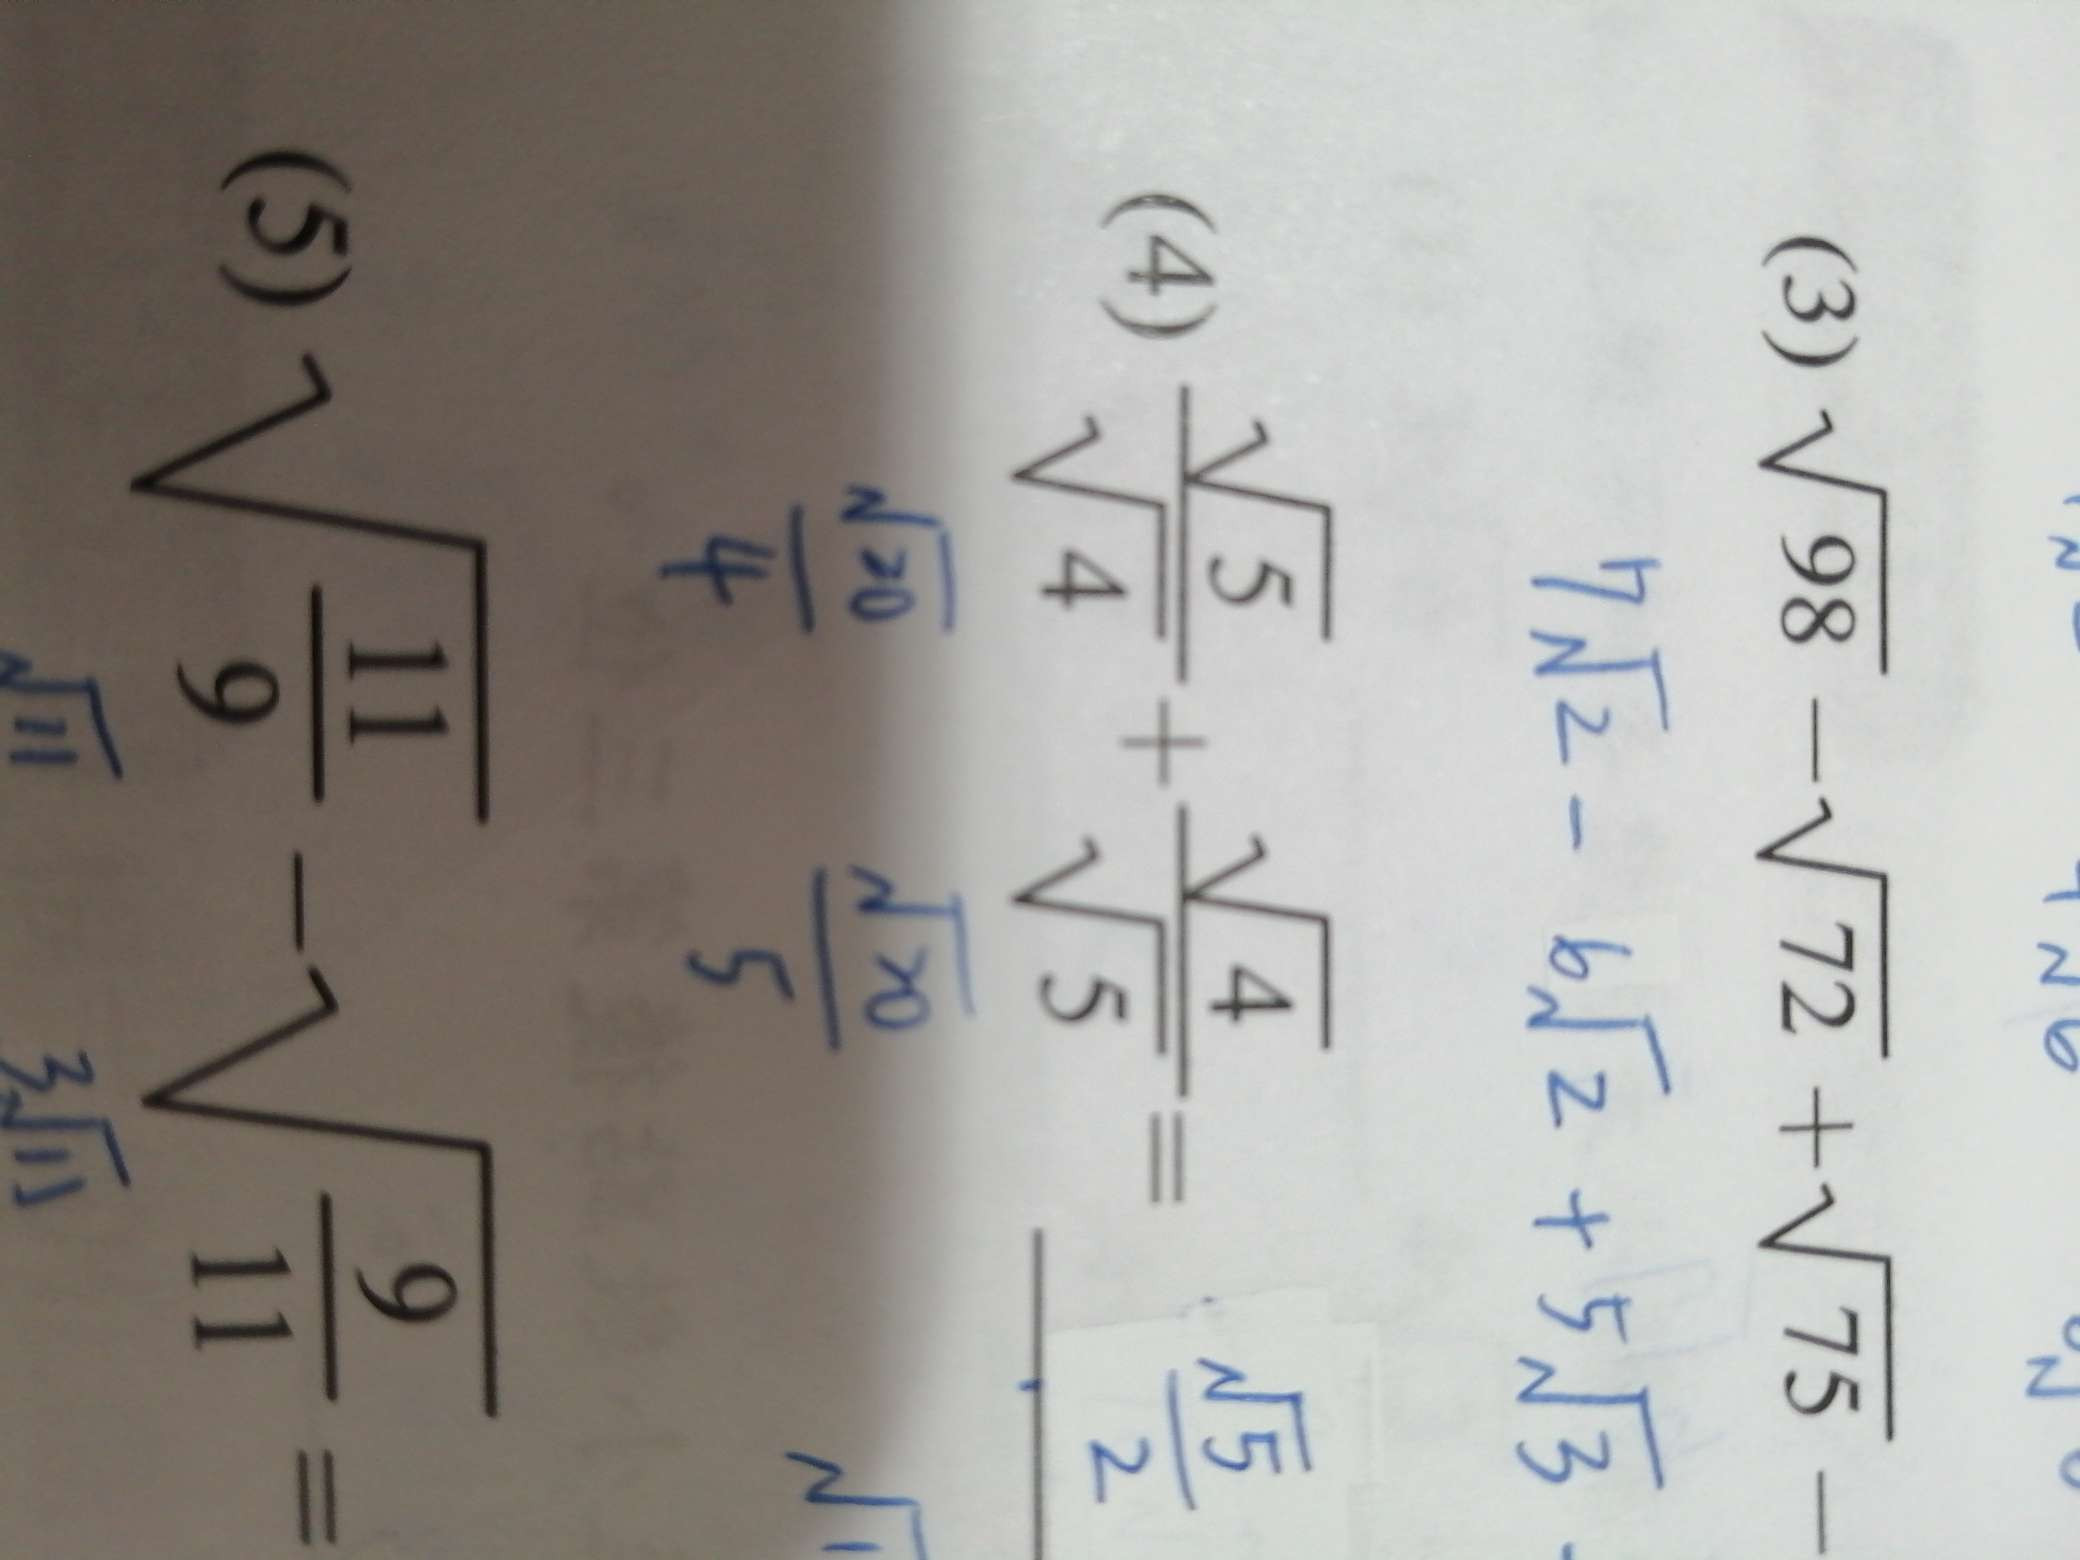 (3) √98 − √72 + √75 −
7√2 - 6√2 + 5√3 -
(4) √5/√4 + √4/√5 = √5/2
√20/4 √20/5
(5) √(11/9) − √(9/11) =
√11 3√11